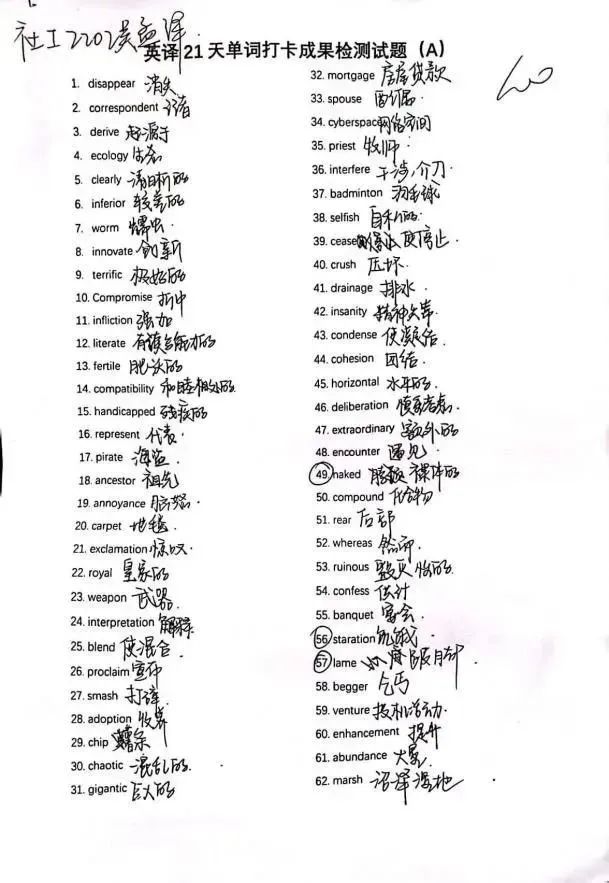 社工2202
英译21天单词打卡成果检测试题（A）
1. disappear 消失
2. correspondent 记者
3. derive 起源于
4. ecology 生态
5. clearly 清晰的
6. inferior 较差的
7. worm 蠕虫
8. innovate 创新
9. terrific 极好的
10. Compromise 折中
11. infliction 强加
12. literate 有读写能力的
13. fertile 肥沃的
14. compatibility 和睦相处的
15. handicapped 残疾的
16. represent 代表
17. pirate 海盗
18. ancestor 祖先
19. annoyance 恼怒
20. carpet 地毯
21. exclamation 惊叹
22. royal 皇家的
23. weapon 武器
24. interpretation 解释
25. blend 使混合
26. proclaim 宣布
27. smash 打碎
28. adoption 收养
29. chip
30. chaotic 混乱的
31. gigantic 巨大的
32. mortgage 房屋贷款
33. spouse 配偶
34. cyberspace 网络空间
35. priest 牧师
36. interfere 干涉,介入
37. badminton 羽毛球
38. selfish 自私的
39. cease 停止
40. crush 压坏
41. drainage 排水
42. insanity 精神失常
43. condense 使凝结
44. cohesion 团结
45. horizontal 水平的
46. deliberation 慎重考虑
47. extraordinary 额外的
48. encounter 遇见
49. naked 裸体的
50. compound 化合物
51. rear 后部
52. whereas 然而
53. ruinous 毁灭性的
54. confess
55. banquet 宴会
56. staration 饥饿
57. lame
58. begger 乞丐
59. venture 投机活动
60. enhancement 提升
61. abundance 大量
62. marsh 沼泽湿地